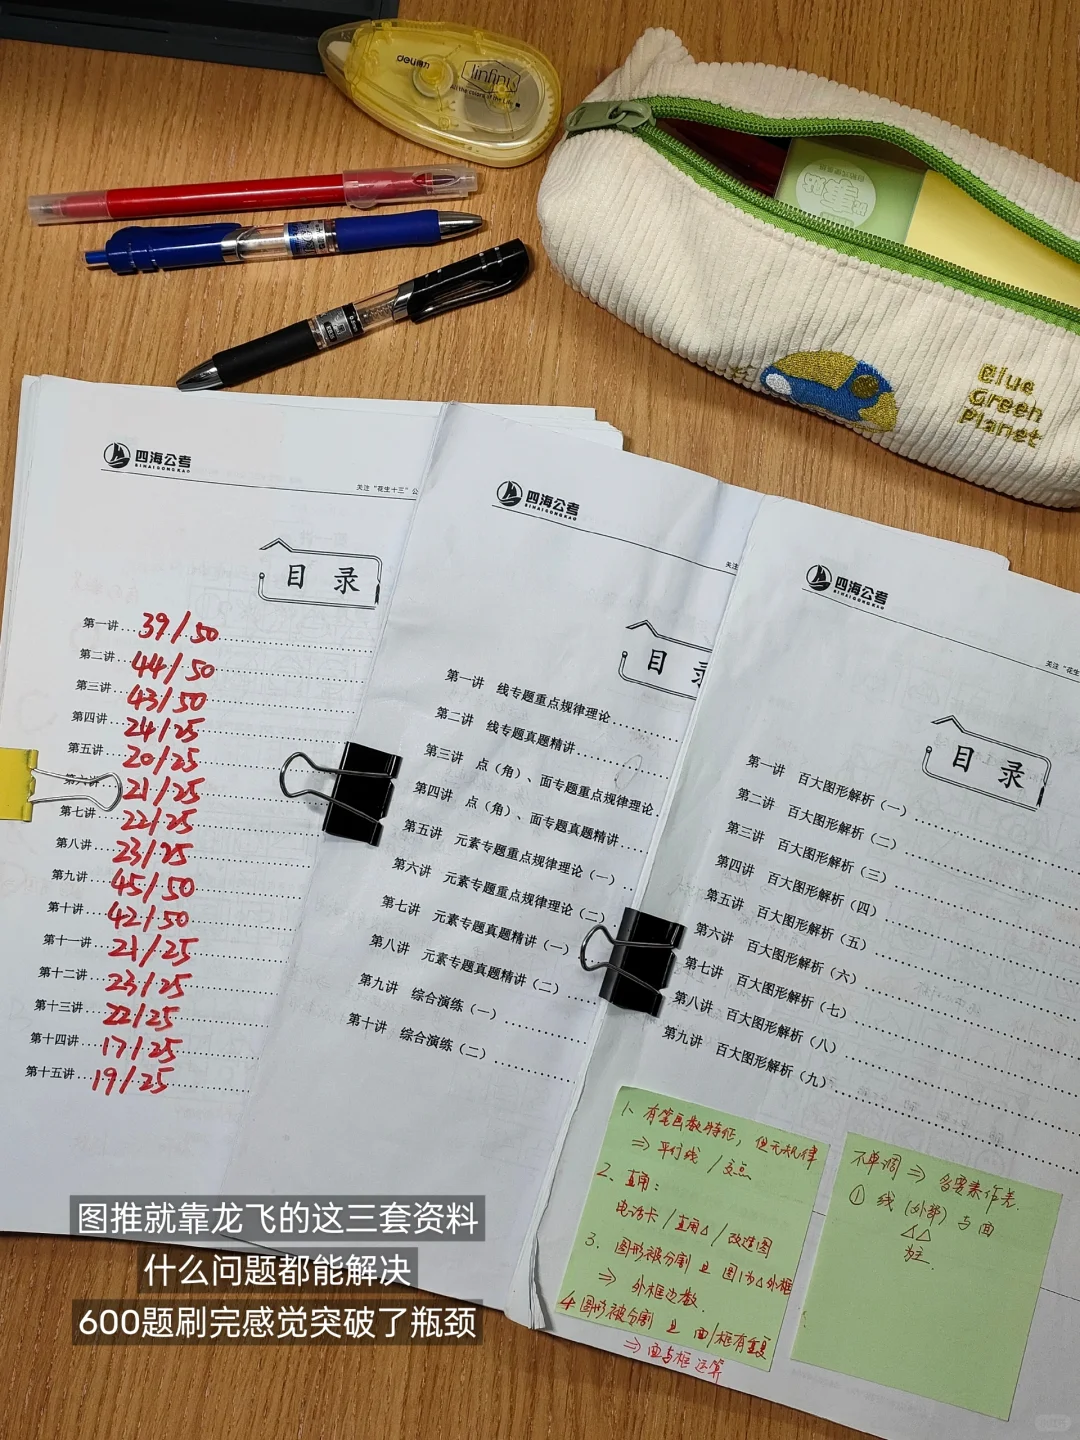 deli得力
Infini
All the colors of the Life
Blue
Green
Planet
四海公考
SIHAIGONGKAO
关注“花生十三”公
目 录
第一讲 39/50
第二讲 44/50
第三讲 43/50
第四讲 24/25
第五讲 20/25
第六讲 21/25
第七讲 22/25
第八讲 23/25
第九讲 45/50
第十讲 42/50
第十一讲 21/25
第十二讲 23/25
第十三讲 22/25
第十四讲 17/25
第十五讲 19/25
四海公考
SIHAIGONGKAO
关注
目 录
第一讲 线专题重点规律理论
第二讲 线专题真题精讲
第三讲 点（角）、面专题重点规律理论
第四讲 点（角）、面专题真题精讲
第五讲 元素专题重点规律理论（一）
第六讲 元素专题重点规律理论（二）
第七讲 元素专题真题精讲（一）
第八讲 元素专题真题精讲（二）
第九讲 综合演练（一）
第十讲 综合演练（二）
四海公考
SIHAIGONGKAO
关注“花生
目 录
第一讲 百大图形解析（一）
第二讲 百大图形解析（二）
第三讲 百大图形解析（三）
第四讲 百大图形解析（四）
第五讲 百大图形解析（五）
第六讲 百大图形解析（六）
第七讲 百大图形解析（七）
第八讲 百大图形解析（八）
第九讲 百大图形解析（九）
1、有笔画数特征，但无规律
⇒ 平行线 / 交点
2、直角：
电话卡 / 直角△ / 改造图
3、图形被分割 且 图1为△外框
⇒ 外框边数.
4、图形被分割 且 面/框有重复
⇒ 面与框运算
不单调 ⇒ 多要素作差.
① 线（外部）与面
△△
为主.
图推就靠龙飞的这三套资料
什么问题都能解决
600题刷完感觉突破了瓶颈